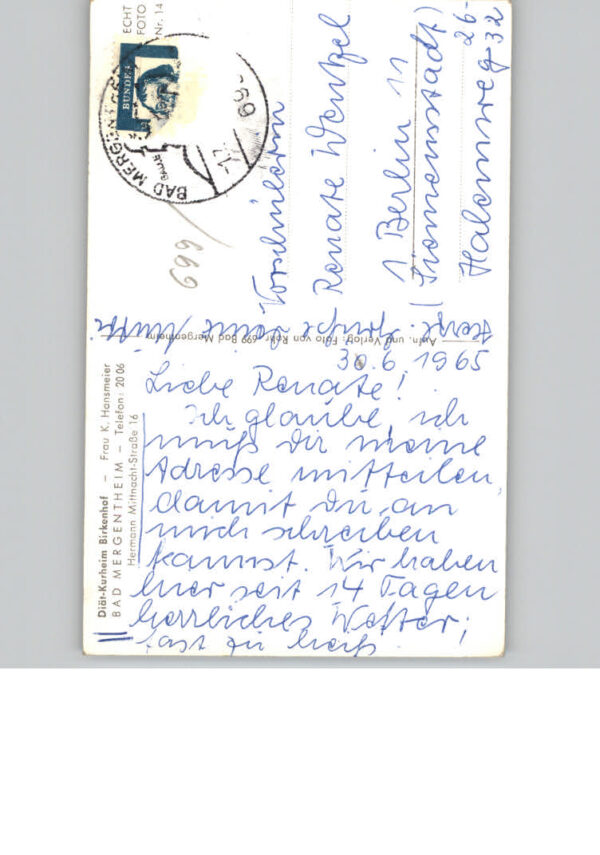 Diät-Kurheim Birkenhof – Frau K. Hansmeier
BAD MERGENTHEIM – Telefon: 20 06
Hermann Mittnacht-Straße 16
30.6.1965
Liebe Renate!
ich glaube, ich
muß Dir meine
Adresse mitteilen,
damit Du an
mich schreiben
kannst. Wir haben
hier seit 14 Tagen
herrliches Wetter;
fast zu heiß.
Herzl. Grüße Deine
Aufn. und Verlag: Foto von Rohr, 699 Bad Mergentheim
ECHT
FOTO
Nr. 14
BUNDES
BAD MERGENTHEIM
699
Vorschülerin
Renate Wentzel
1 Berlin 11
(Siemensstadt)
Halemweg 26-
32